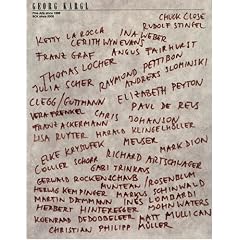 GEORG KARGL
Fine Arts since 1998
BOX since 2005
CHUCK CLOSE
KETTY LA ROCCA INA WEBER RUDOLF STINGEL
CERITH WYN EVANS
FRANZ GRAF ANGUS FAIRHURST
THOMAS LOCHER RAYMOND PETTIBON
JULIA SCHER ANDREAS SLOMINSKI
CLEGG/GUTTMANN ELIZABETH PEYTON
VERA FRENKEL PAUL DE REUS
FRANZ ACKERMANN CHRIS JOHANSON
LISA RUYTER HARALD KLINGELHÖLLER
ELKE KRYSTUFEK MEUSER MARK DION
COLLIER SCHORR RICHARD ARTSCHWAGER
GABI TRINKAUS
GERWALD ROCKENSCHAUB
MUNTEAN/ROSENBLUM
HERLUS KEMPINGER MARKUS SCHINWALD
MARTIN DAMMANN INES LOMBARDI
HERBERT HINTEREGGER JOHN WATERS
KOENRAAD DEDOBBELEER MATT MULLICAN
CHRISTIAN PHILIPP MÜLLER